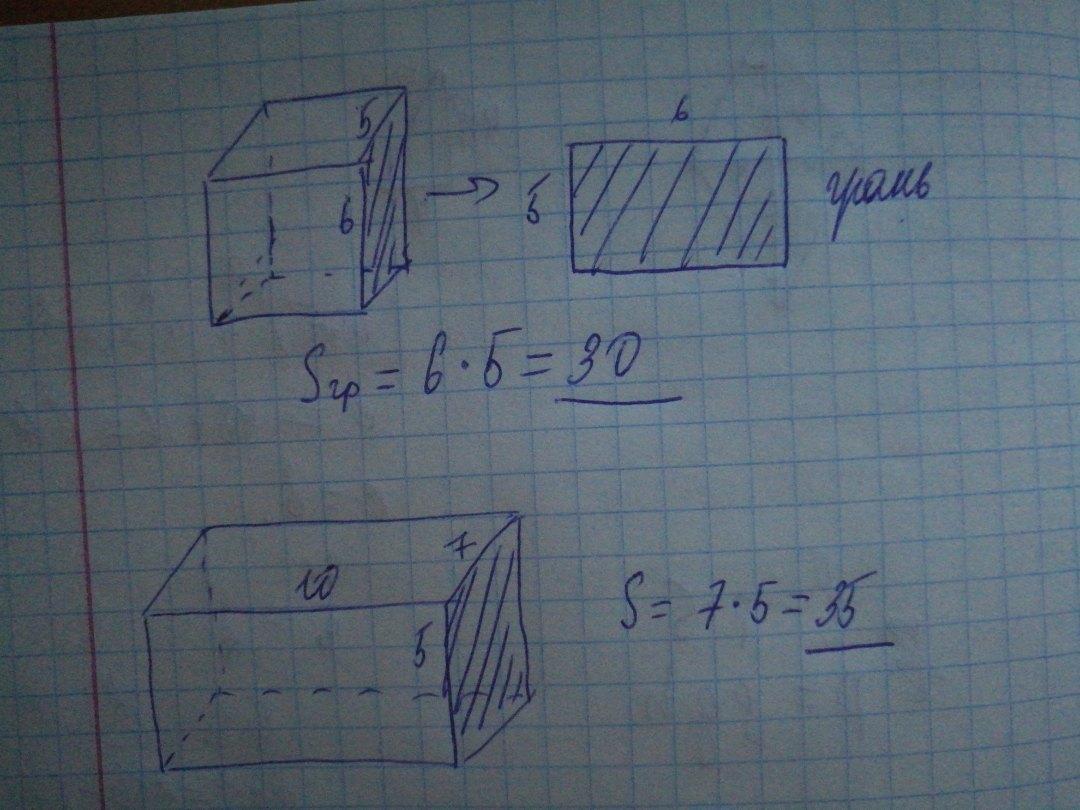 5
6
6
5
грань
Sгр = 6 · 5 = 30
7
10
5
S = 7 · 5 = 35